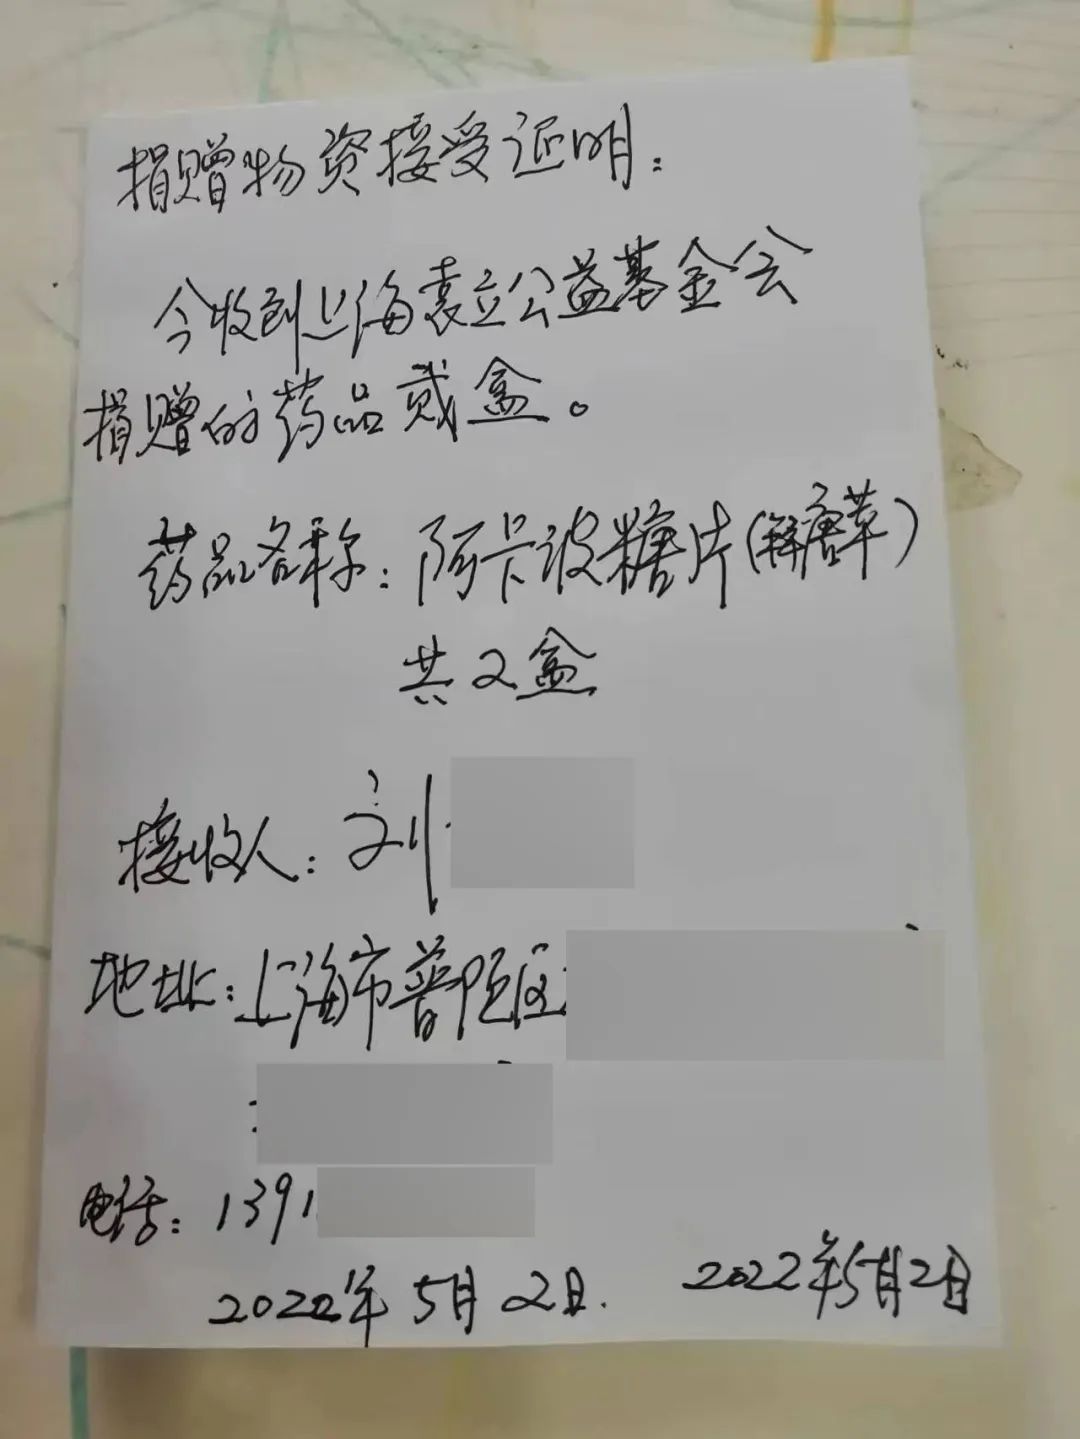 捐赠物资接受证明：
今收到上海袁立公益基金会
捐赠的药品贰盒。
药品名称：阿卡波糖片（解唐草）
共2盒
接收人：刘
地址：上海市普陀区
电话：1391
2022年5月2日. 2022年5月2日